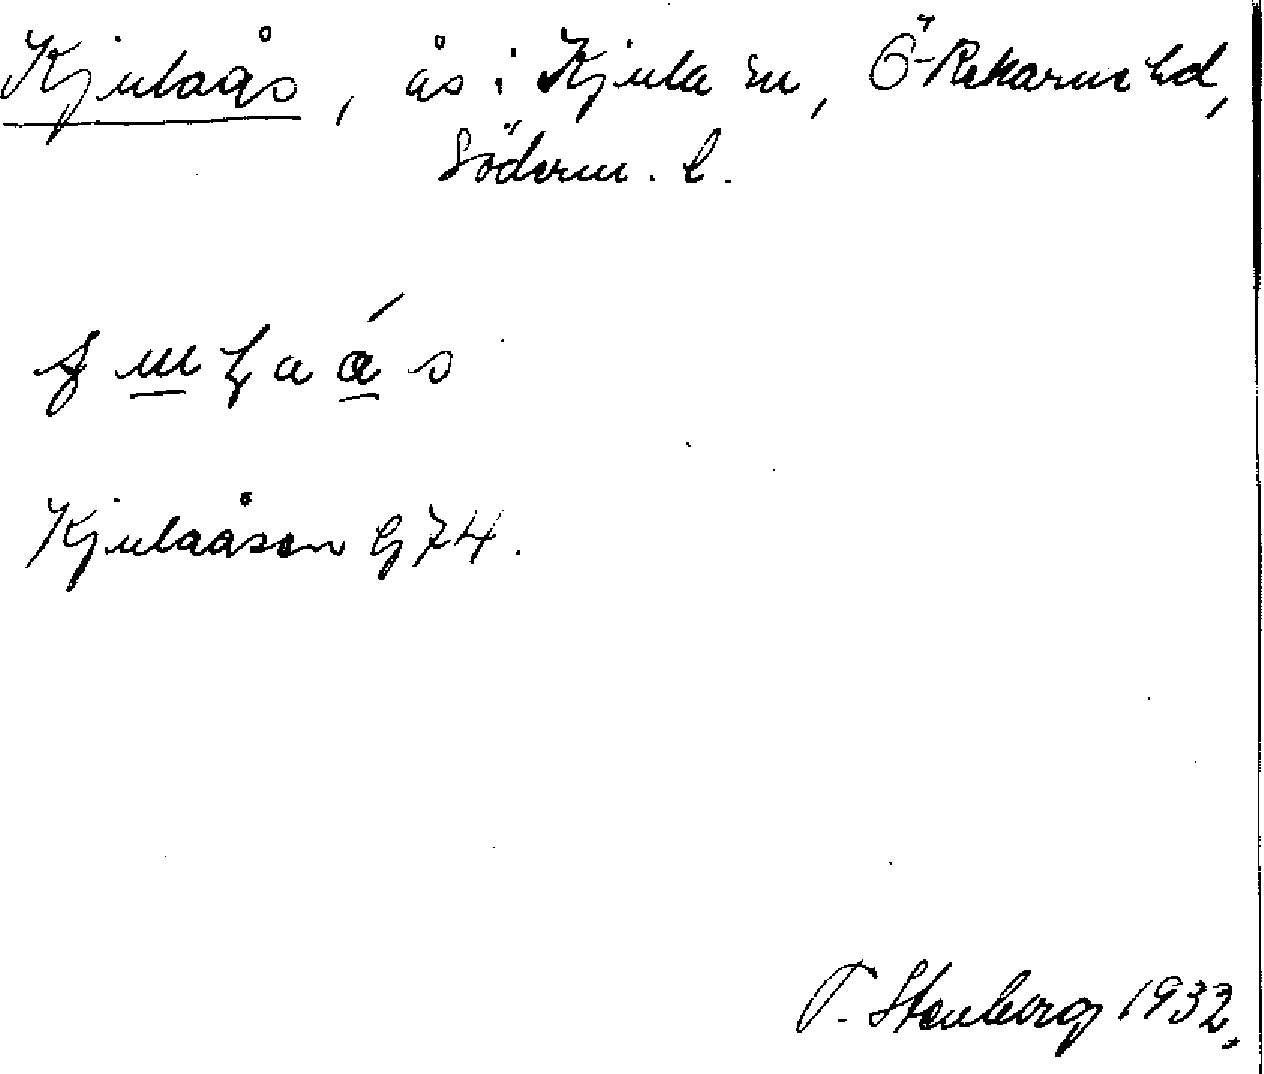 Kjulaås, ås i Kjula sn, Ö-Rekarne hd,
Söderm. l.
Kjulaåsen G 74.
T. Stenberg 1932.